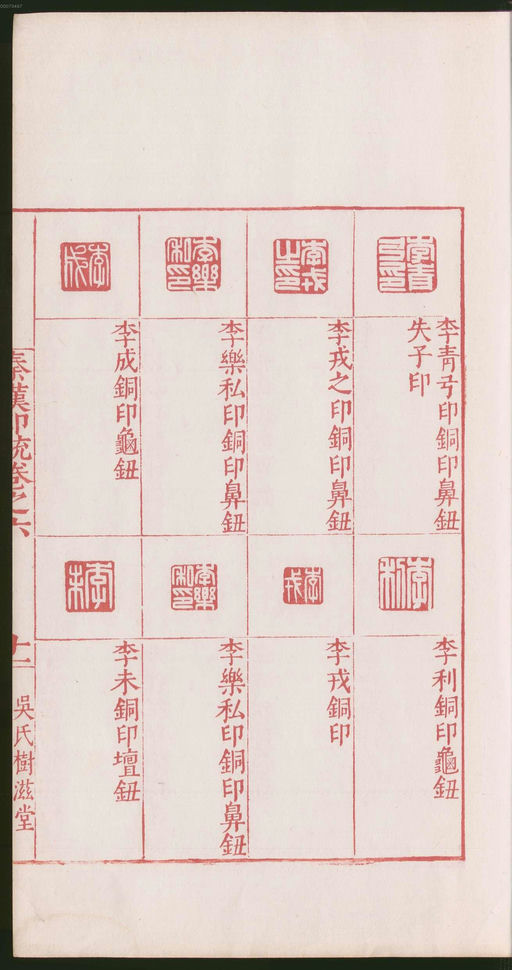 李青弓印銅印鼻鈕
失子印
李戎之印銅印鼻鈕
李樂私印銅印鼻鈕
李成銅印龜鈕
李利銅印龜鈕
李戎銅印
李樂私印銅印鼻鈕
李未銅印壇鈕
秦漢印統卷之六
十一
吳氏樹滋堂
00073487